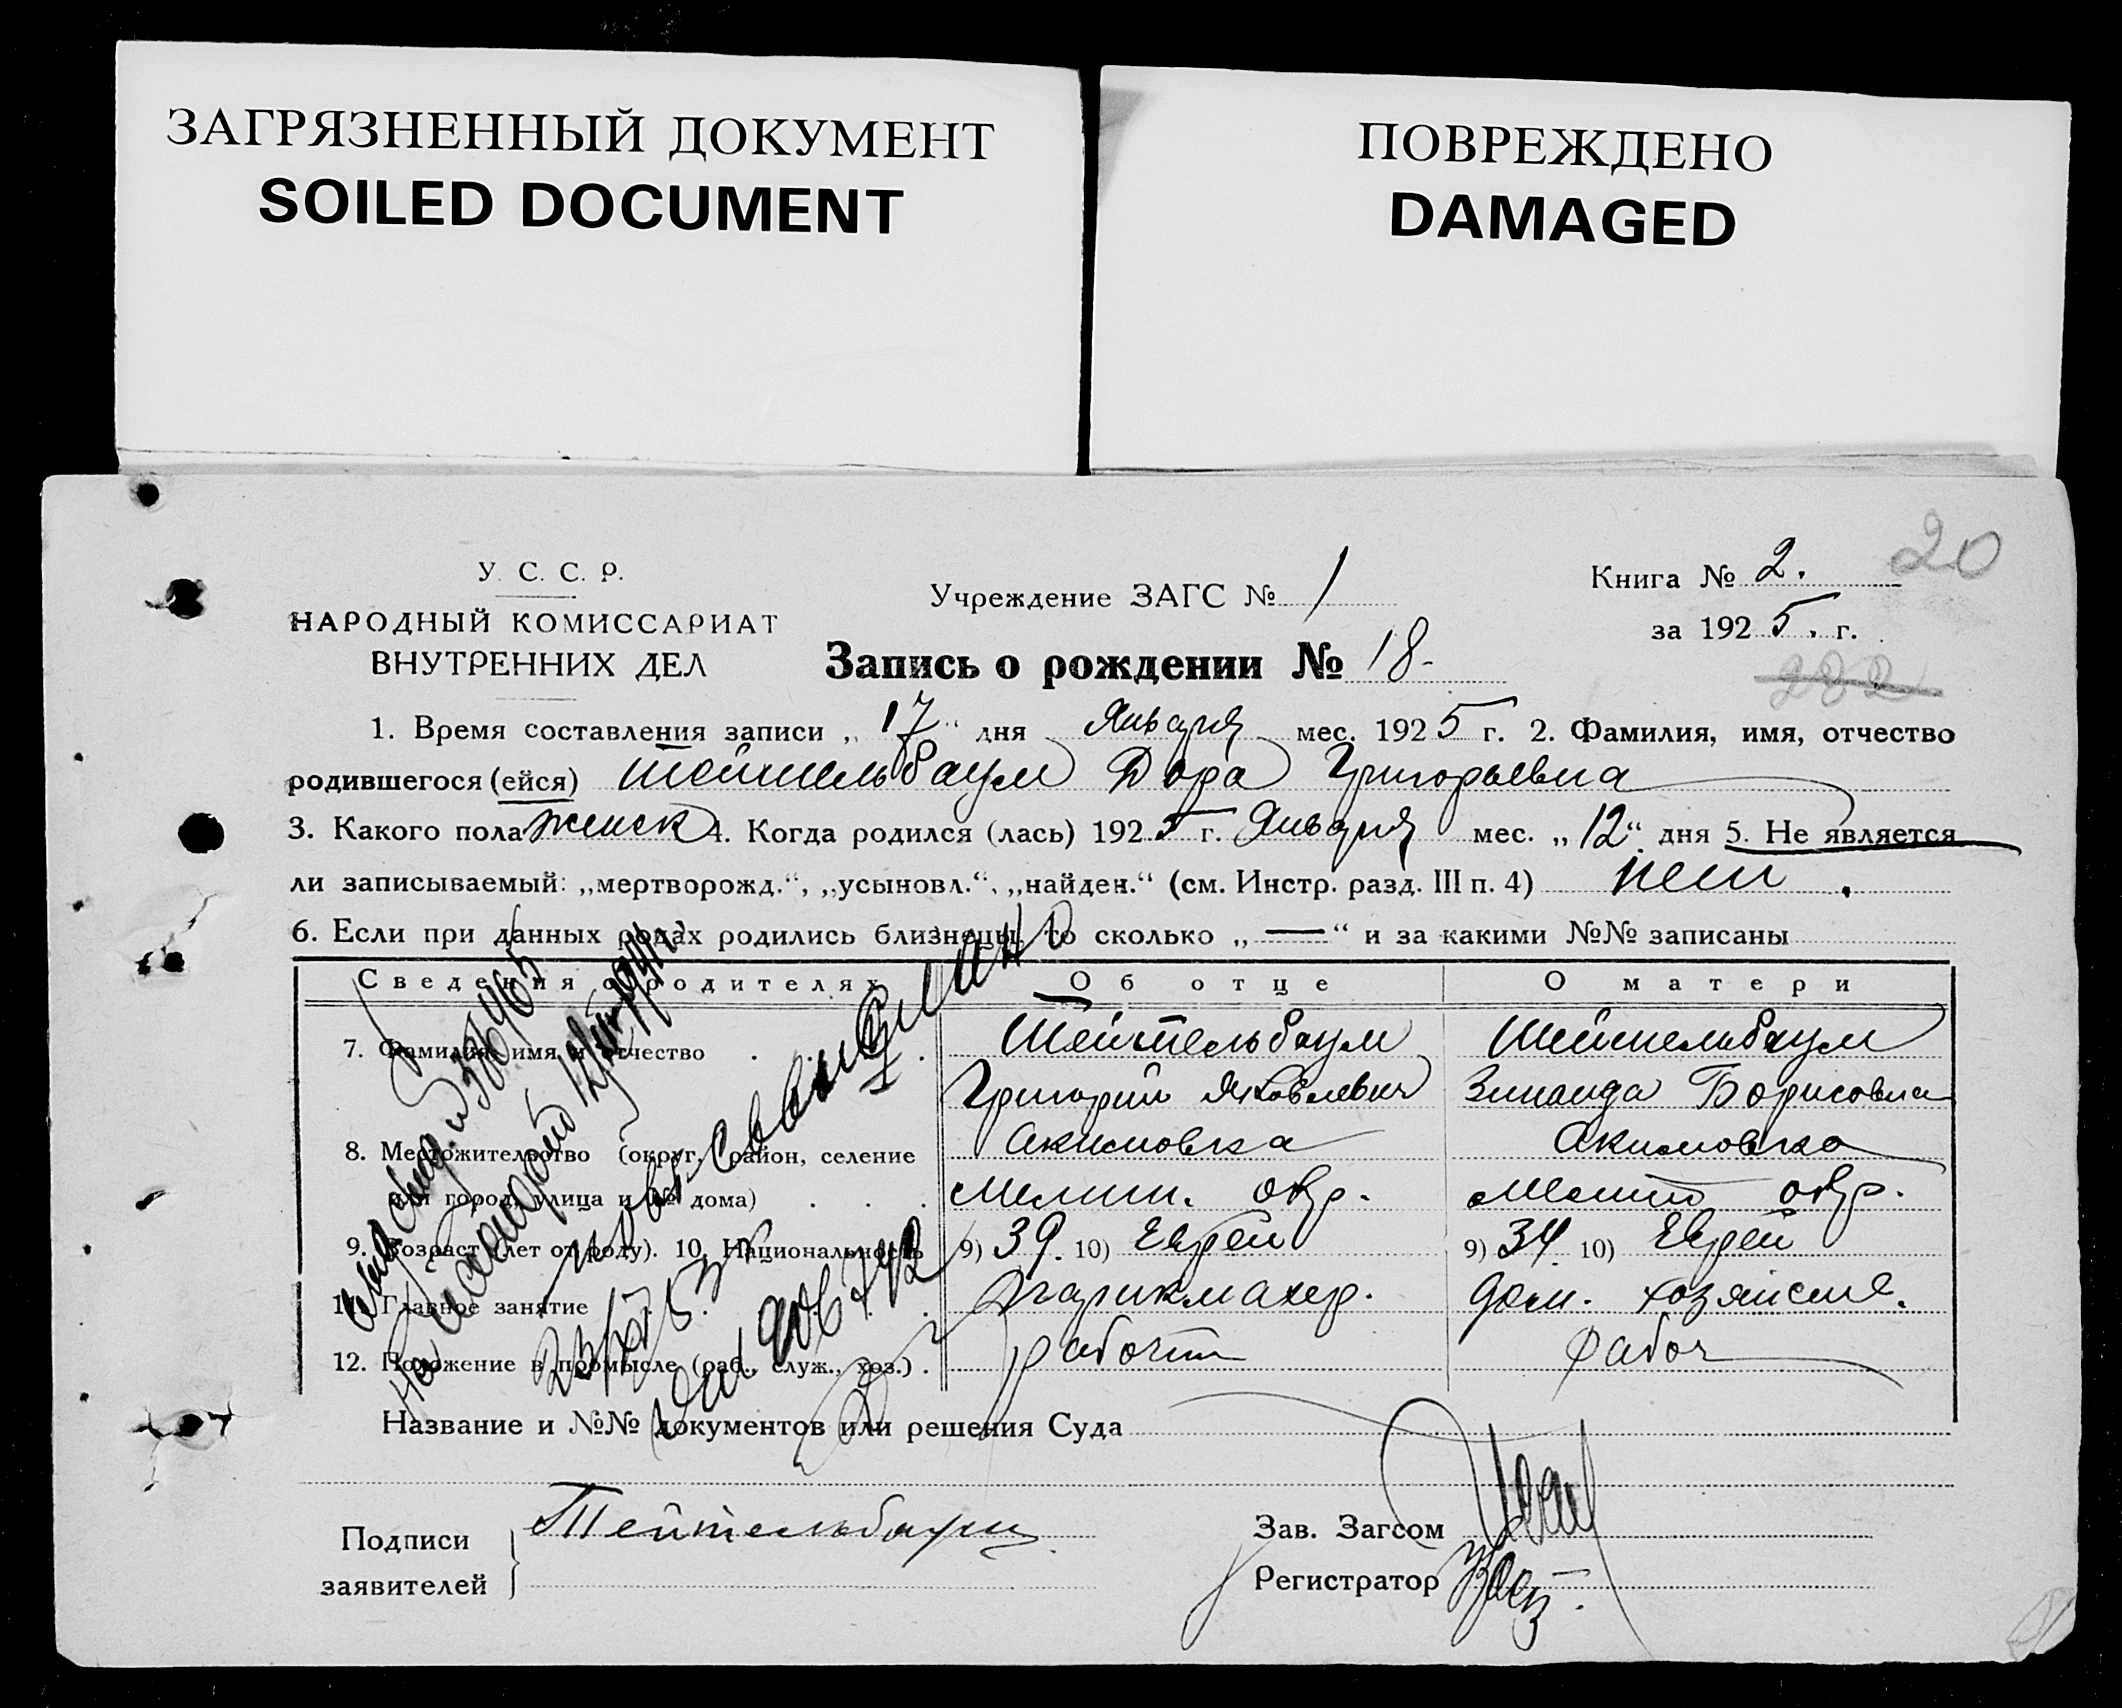 ЗАГРЯЗНЕННЫЙ ДОКУМЕНТ
SOILED DOCUMENT
ПОВРЕЖДЕНО
DAMAGED
20
У. С. С. Р.
НАРОДНЫЙ КОМИССАРИАТ
ВНУТРЕННИХ ДЕЛ
Учреждение ЗАГС № 1
Книга № 2.
за 1925. г.
Запись о рождении № 18-
282
1. Время составления записи „17“ дня Января мес. 1925 г. 2. Фамилия, имя, отчество
родившегося (ейся) Тейтельбаум Дора Григорьевна
3. Какого пола женск 4. Когда родился (лась) 1925 г. Января мес. „12“ дня 5. Не является
ли записываемый: „мертворожд.“, „усыновл.“, „найден.“ (см. Инстр. разд. III п. 4) нет.
6. Если при данных родах родились близнецы, то сколько „—“ и за какими №№ записаны
Сведения о родителях Об отце О матери
7. Фамилия, имя и отчество Тейтельбаум Тейтельбаум
Григорий Яковлевич Зинаида Борисовна
8. Местожительство (округ, район, селение Акимовка Акимовка
или город, улица и № дома) Мелит. окр. Мелит окр.
9. Возраст (лет от роду). 10. Национальность 9) 39. 10) Еврей 9) 34 10) Еврей
11. Главное занятие Парикмахер. дом. хозяйств.
12. Положение в промысле (раб., служ., хоз.) рабочий рабоч
Название и №№ документов или решения Суда
Подписи
заявителей
Тейтельбаум
Зав. Загсом
Регистратор